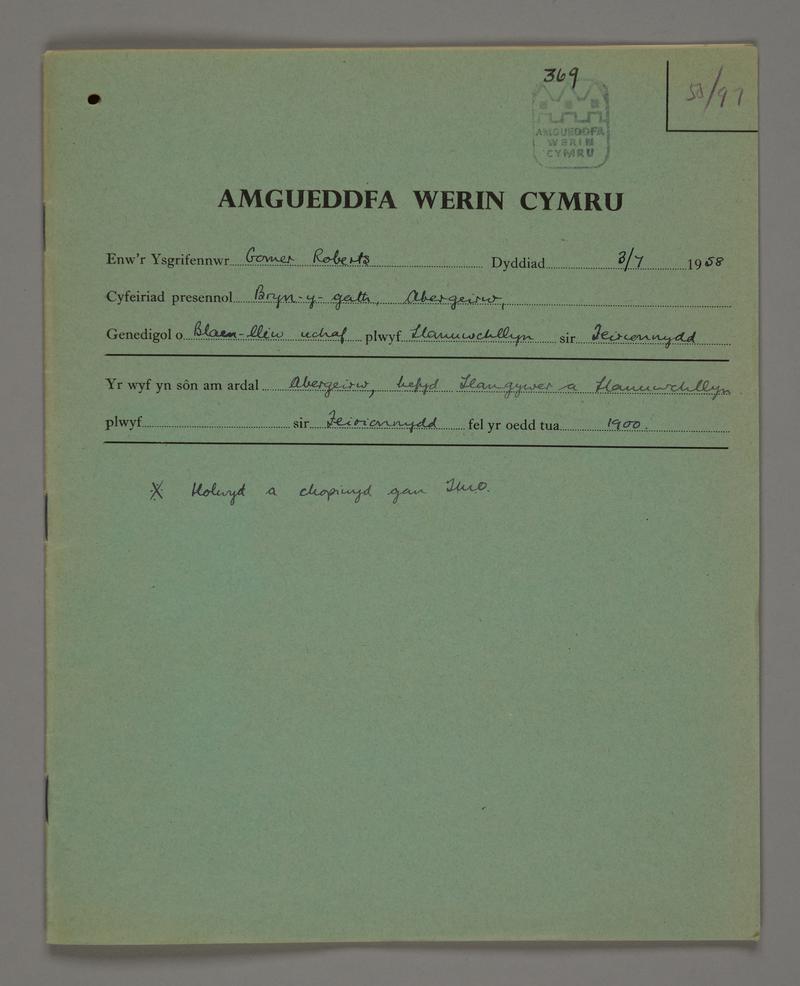 369
58/97
AMGUEDDFA
WERIN
CYMRU
AMGUEDDFA WERIN CYMRU
Enw'r Ysgrifennwr Gomer Roberts Dyddiad 3/7 1958
Cyfeiriad presennol Bryn-y-gath, Abergeirw,
Genedigol o Blaen-lliw uchaf plwyf Llanuwchllyn sir Feirionnydd
Yr wyf yn sôn am ardal Abergeirw, hefyd Llangywer a Llanuwchllyn.
plwyf sir Feirionnydd fel yr oedd tua 1900.
X Holwyd a chopiwyd gan